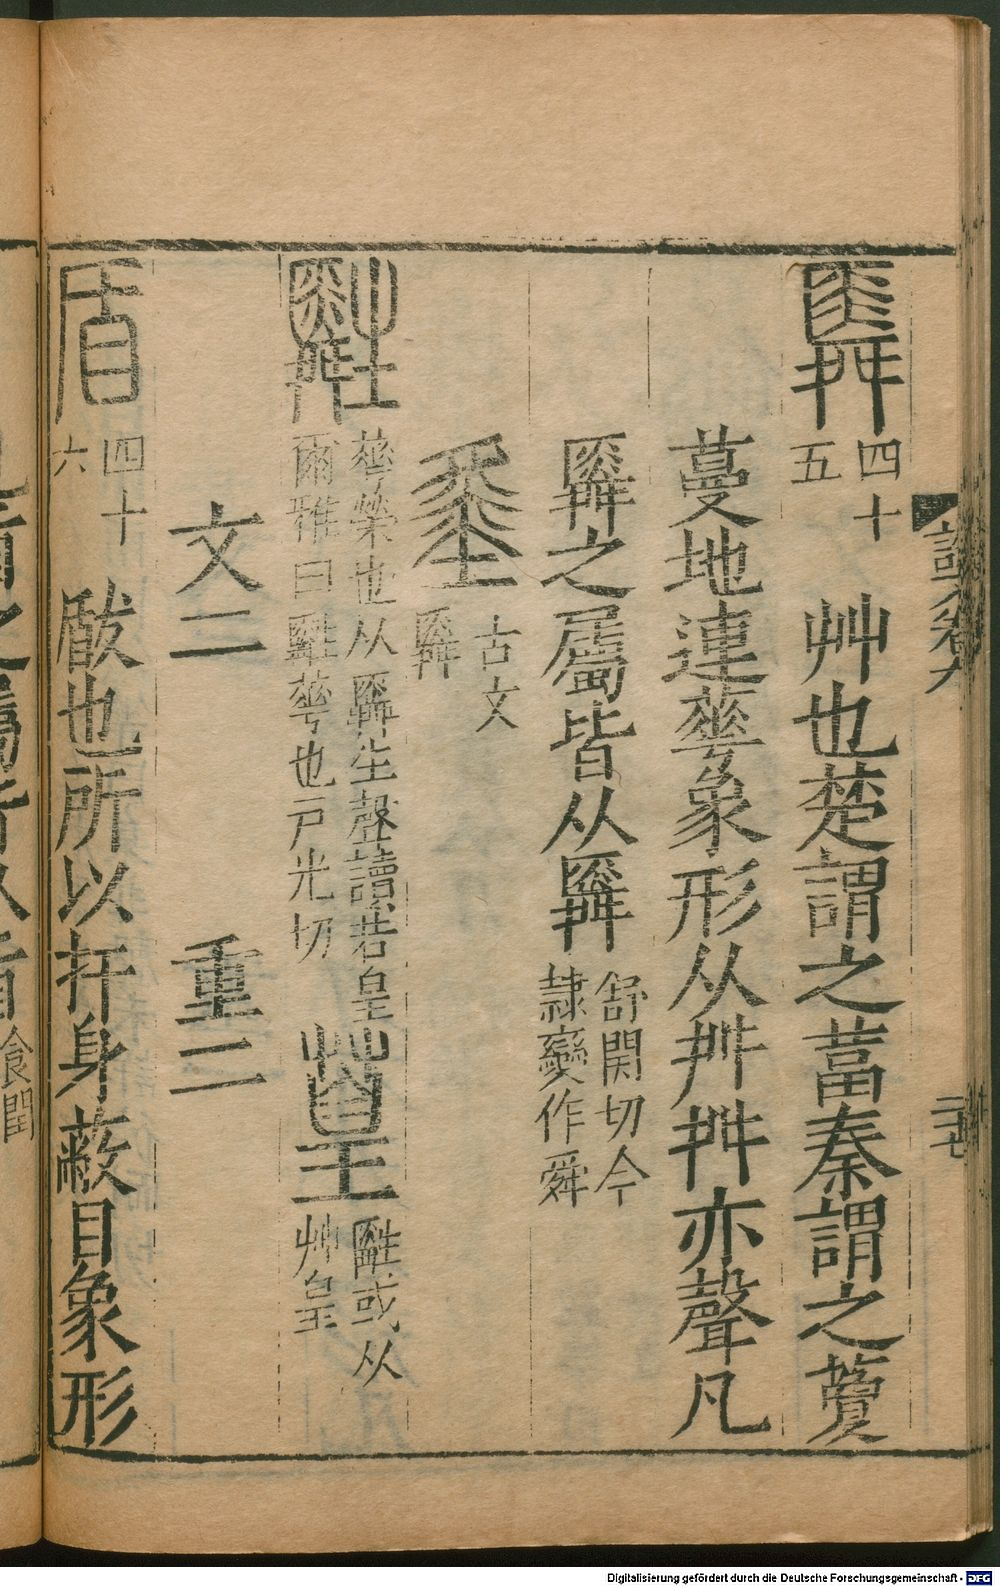 䑞 四十五 艸也楚謂之葍秦謂之藑
蔓地連蕚象形从舛舛亦聲凡
䑞之屬皆从䑞 舒閏切今隷變作舜
古文䑞
䑞 蕚榮也从䑞生聲讀若皇爾雅曰䑞蕚也戸光切 葟 䑞或从艸皇
文二 重二
盾 四十六 瞂也所以扞身蔽目象形
Digitalisierung gefördert durch die Deutsche Forschungsgemeinschaft - DFG